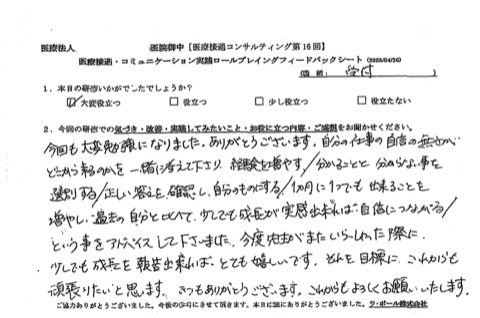 医療法人 医院御中【医療接遇コンサルティング第16回】
医療接遇・コミュニケーション実践ロールプレイングフィードバックシート（2025/04/20）
（職種： 受付 ）
1．本日の研修いかがでしたでしょうか？
☑大変役立つ □役立つ □少し役立つ □役立たない
2．今回の研修での気づき・改善・実践してみたいこと・お役に立つ内容・ご感想をお聞かせください。
今回も大変勉強になりました。ありがとうございます。自分の仕事の自信の無さが
どこから来るのかを一緒に考えて下さり、経験を増やす／分かることと分からない事を
選別する／正しい答えを確認し、自分のものにする／1ヵ月に1つでも出来ることを
増やし、過去の自分と比べて、少しでも成長が実感出来れば自信につながる／
という事をアドバイスして下さいました。今度先生がまたいらっしゃった際に、
少しでも成長を報告出来ればとても嬉しいです。それを目標に、これからも
頑張りたいと思います。いつもありがとうございます。これからもよろしくお願いいたします。
ご協力ありがとうございました。今後の学習にさせて頂きます。本日は誠にありがとうございました。 ラ・ポール株式会社